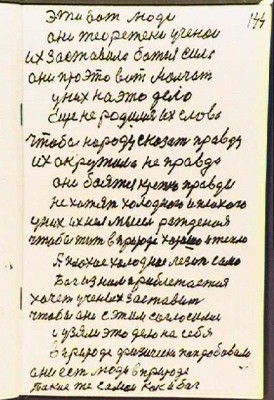 144
эти вот люди
они теоретени ученои
их заставила божия сила
они про это вит молчат
у них на это дело
еще не родился их слова
чтобы народу сказат правду
их окружила не правда
они боятся крепко правды
не хотят холодного и плохого
у них их нея мысли рождения
чтобы жит в природе хорошо и тепло
А плохое холодное лезит само
Бог из ним приближается
хочет ученых заставит
чтобы они с этим согласили
и узяли это дело на себя
в природе физически попробовали
они ест люди в природе
такие же самои как и бог